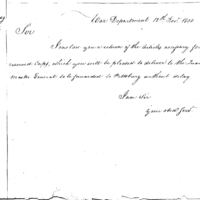 War Department, 12th Nov. 1800
Sir
I enclose you a return of the articles necessary for
Cups, which you will be pleased to deliver to the Quar
Master General to be forwarded to Pittsburg without delay
I am Sir
your obed Serv